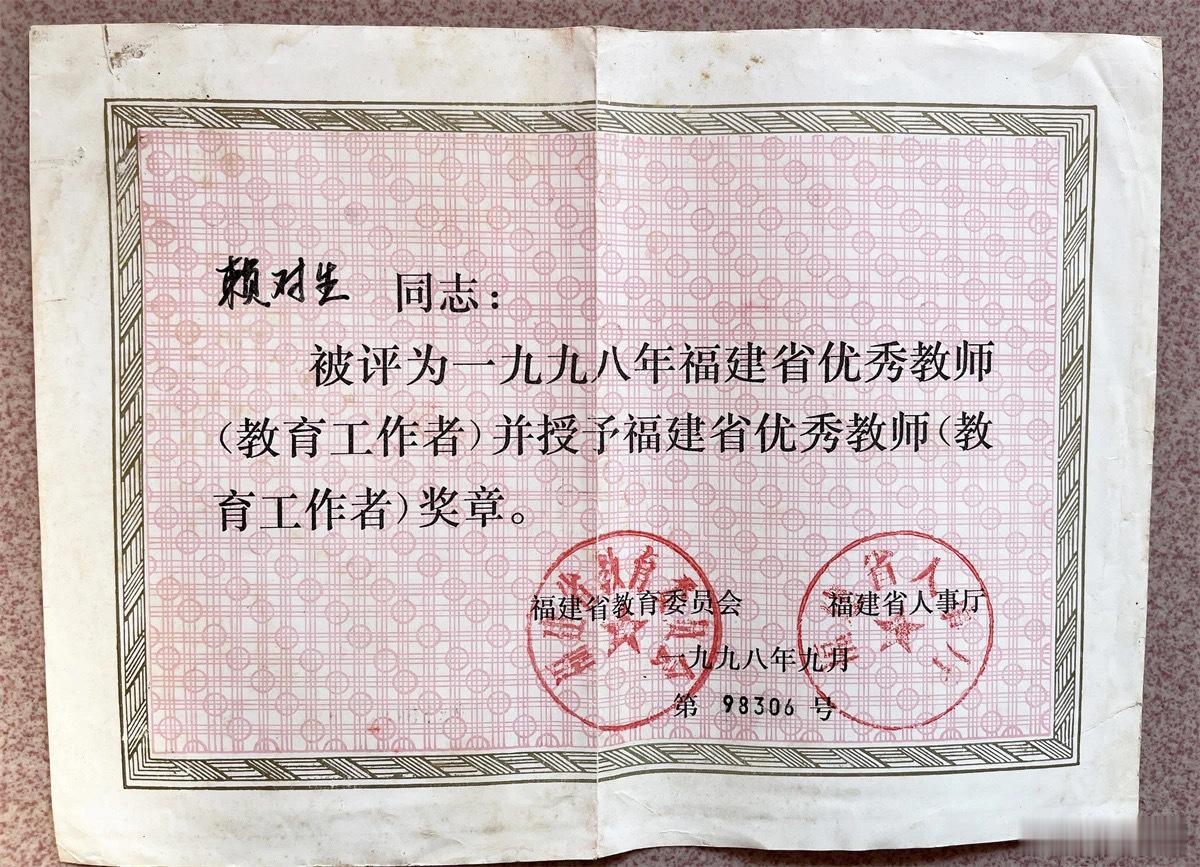 赖对生 同志：
被评为一九九八年福建省优秀教师
（教育工作者）并授予福建省优秀教师（教
育工作者）奖章。
福建省教育委员会 福建省人事厅
一九九八年九月
第 98306 号